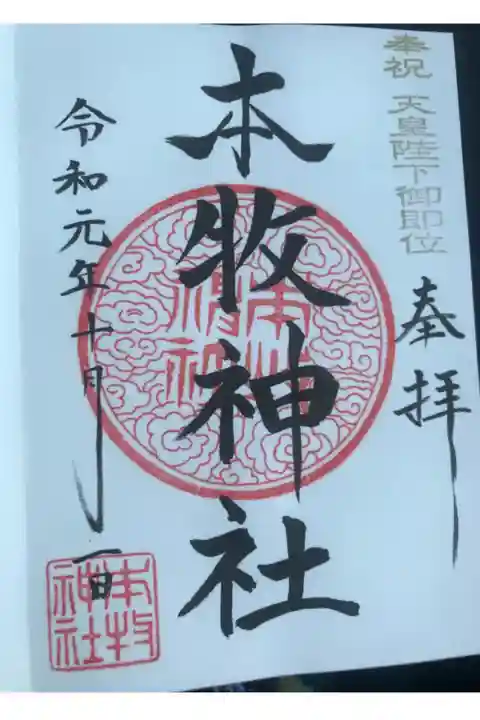 奉祝 天皇陛下御即位
奉拝
本牧神社
令和元年十月一日
本牧
神社